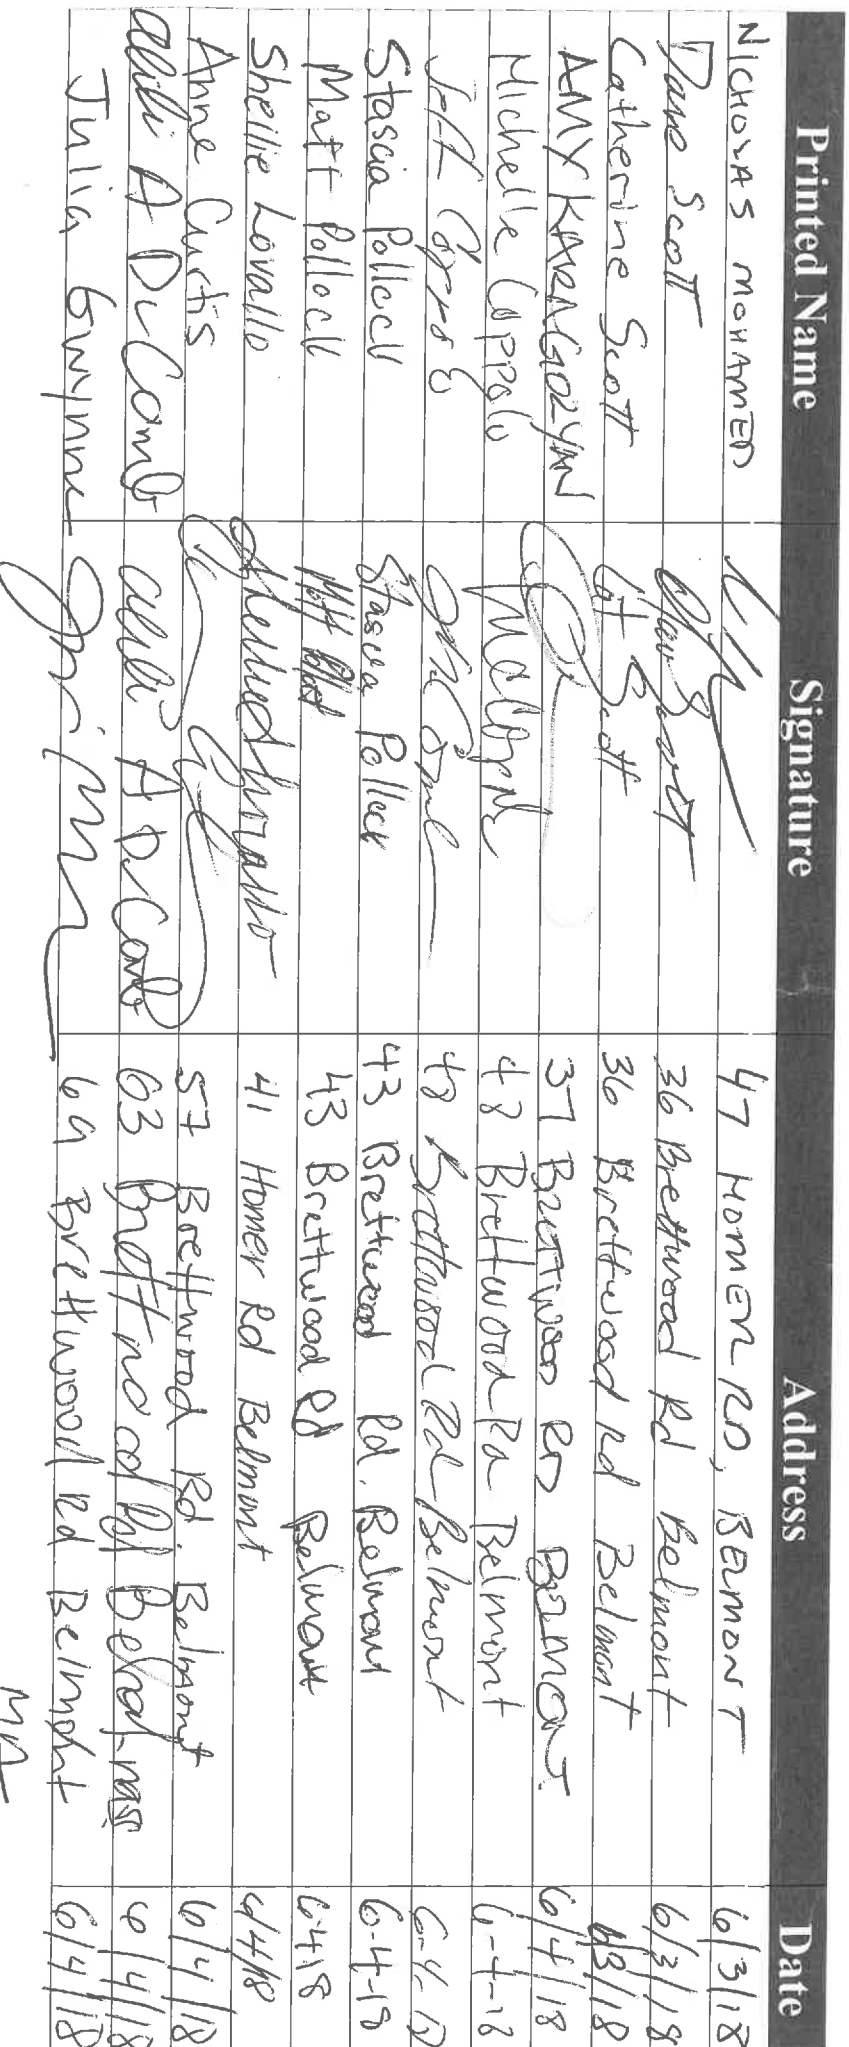 Printed Name Signature Address Date
NICHOLAS MOHAMED 47 HOMER RD, BELMONT 6/3/18
Dave Scott 36 Brettwood Rd Belmont 6/3/18
Catherine Scott Cat Scott 36 Brettwood Rd Belmont 6/3/18
AMY KARAGOZYAN 37 BRETTWOOD RD BELMONT 6/4/18
Michelle Coppolo 48 Brettwood Rd Belmont 6-4-18
Jeff 48 Brettwood Rd Belmont 6-4-18
Stascia Pollock Stascia Pollock 43 Brettwood Rd. Belmont 6-4-18
Matt Pollock 43 Brettwood Rd Belmont 6-4-18
Shellie Lovallo 41 Homer Rd Belmont 6/4/18
Anne Curtis 57 Brettwood Rd. Belmont 6/4/18
A 63 Brettwood Rd 6/4/18
Julia Gwynne 69 Brettwood Rd Belmont 6/4/18
MA